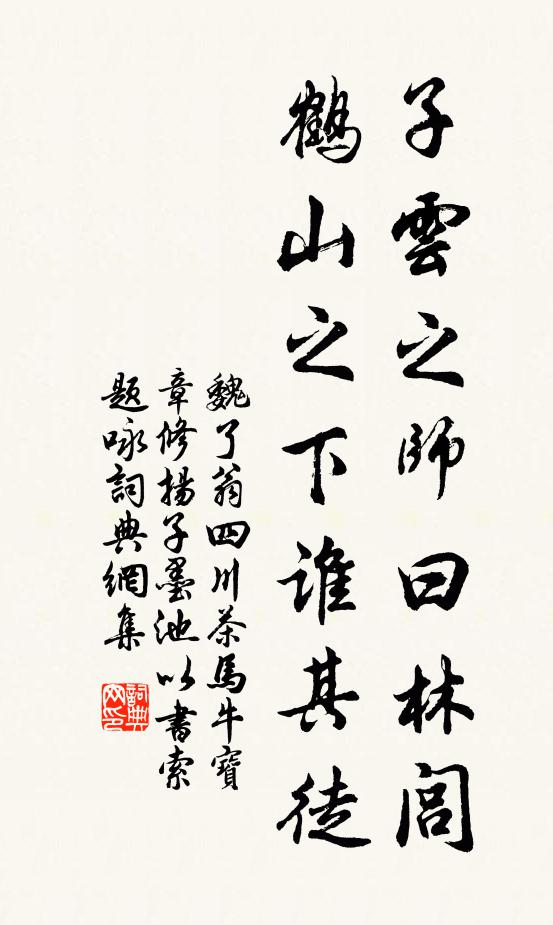 子雲之師曰林閭
鶴山之下誰其徒
魏了翁四川茶馬牛寶
章修揚子墨池以書索
題咏詞典網集
詞典網印